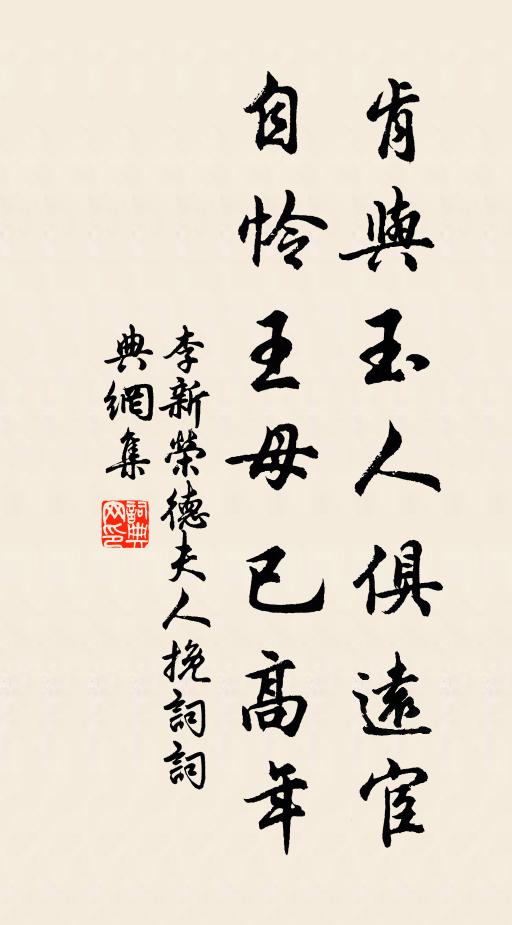 肯與玉人俱遠宦
自怜王母已高年
李新榮德夫人挽詞詞
典網集
詞典网印